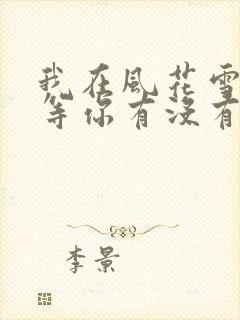 我在風花雪
等你有沒有
李景